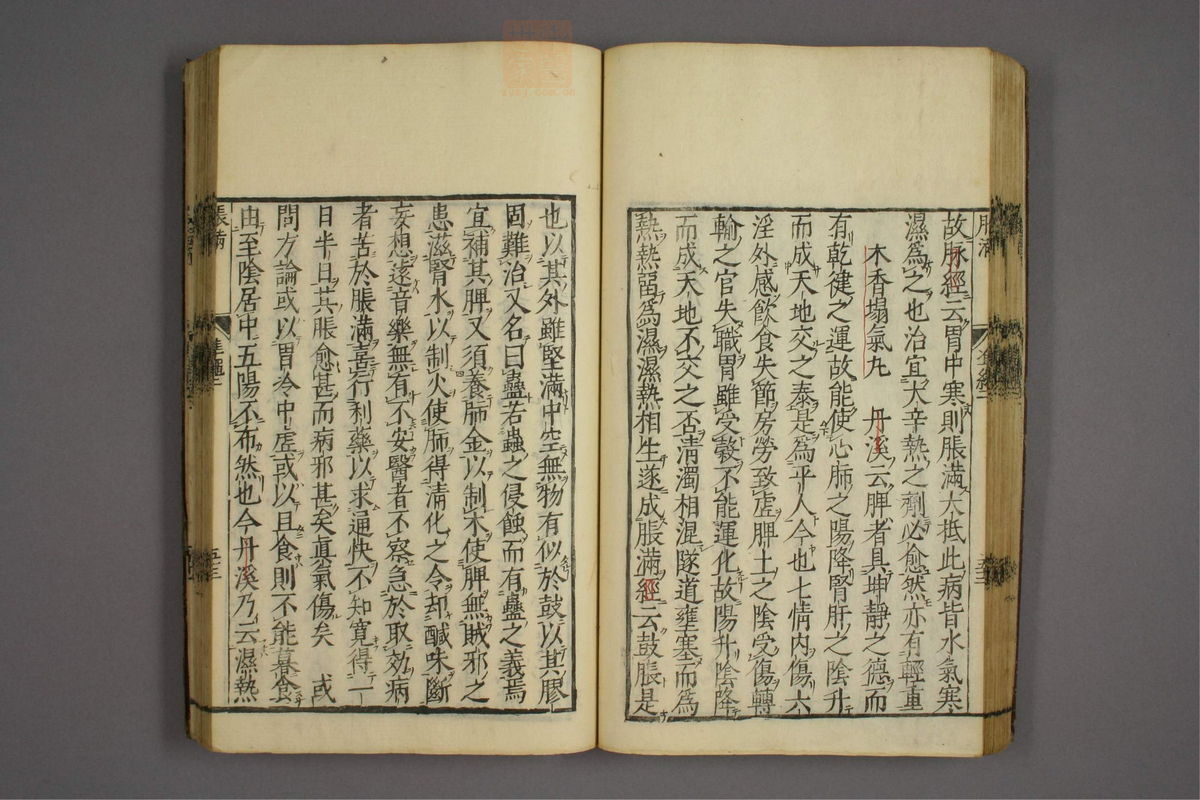 故脉經云胃中寒則脹滿大抵此病皆水氣寒
濕爲之也治宜大辛熱之劑必愈然亦有輕重
木香塌氣丸 丹溪云脾者具坤靜之德而
有乾健之運故能使心肺之陽降腎肝之陰升
而成天地交之泰是爲平人今也七情内傷六
淫外感飮食失節房勞致虚脾土之陰受傷轉
輸之官失職胃雖受穀不能運化故陽升陰降
而成天地不交之否清濁相混隧道壅塞而爲
熱熱留爲濕濕熱相生遂成脹滿經云鼓脹是
也以其外雖堅滿中空無物有似於鼓以其膠
固難治又名曰蠱若蟲之侵蝕而有蠱之義焉
宜補其脾又須養肺金以制木使脾無賊邪之
患滋腎水以制火使肺得清化之令却醎味斷
妄想遠音樂無有不安醫者不察急於取効病
者苦於脹滿喜行利藥以求通快不知寛得一
日半日其脹愈甚而病邪甚矣眞氣傷矣 或
問方論或以胃冷中虚或以且食則不能暮食
由至陰居中五陽不布然也今丹溪乃云濕熱
脹滿